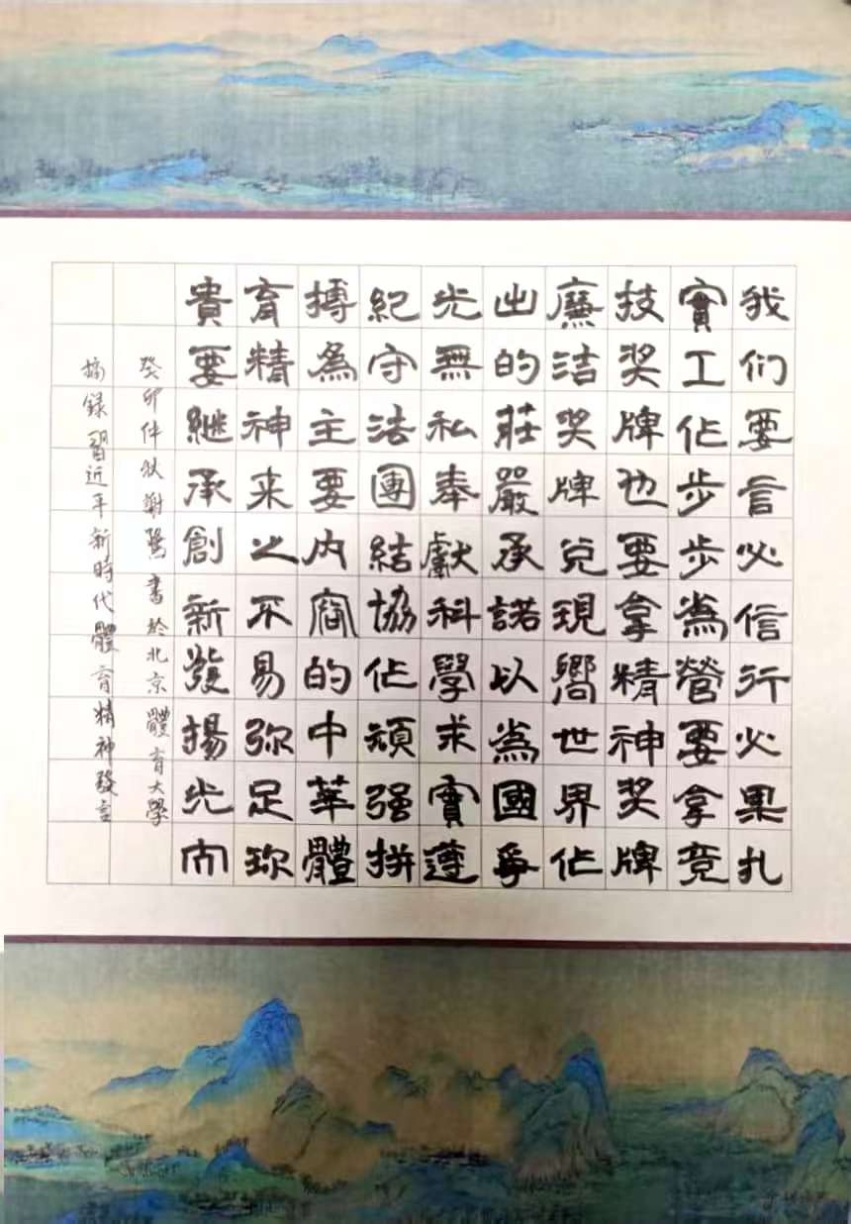 我们要言必信行必果扎
實工作步步為營要拿竞
技奖牌也要拿精神奖牌
廉洁奖牌兑現嚮世界作
出的莊嚴承諾以為國爭
光無私奉獻科學求實遵
紀守法團結協作頑强拼
搏為主要内容的中華體
育精神来之不易弥足珍
貴要継承創新發揚光
癸卯仲秋謝書於北京體育大學
摘録習近平新時代體育精神發言